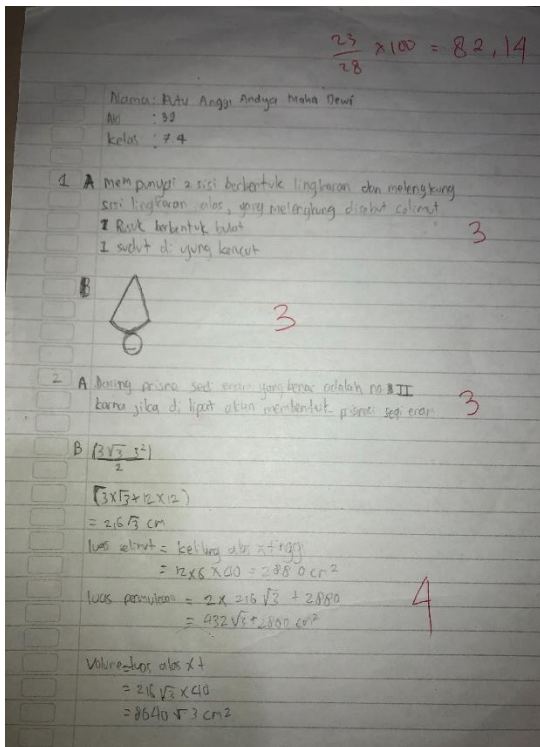 23/28 x100 = 82,14
Nama: Putu Anggi Andya Maha Dewi
No : 39
Kelas : 7 4
1 A mempunyai 2 sisi berbentuk lingkaran dan melengkung
sisi lingkaran alas, yang melengkung disebut selimut
1 Rusuk berbentuk bulat
1 sudut di yung kerucut
3
B
3
2 A Jaring prisma segi enam yang benar adalah no II
karna jika di lipat akan membentuk prisma segi enam
3
B (3√3 3²)/2
(3x√3+12x12)
= 216√3 cm
luas selimut = keliling alas x tinggi
= 12x6 x40 = 2880 cm²
luas permukaan = 2x 216√3 + 2880
= 432√3+2880 cm²
4
Volume=luas alas x t
= 216√3 x40
= 8640√3 cm²